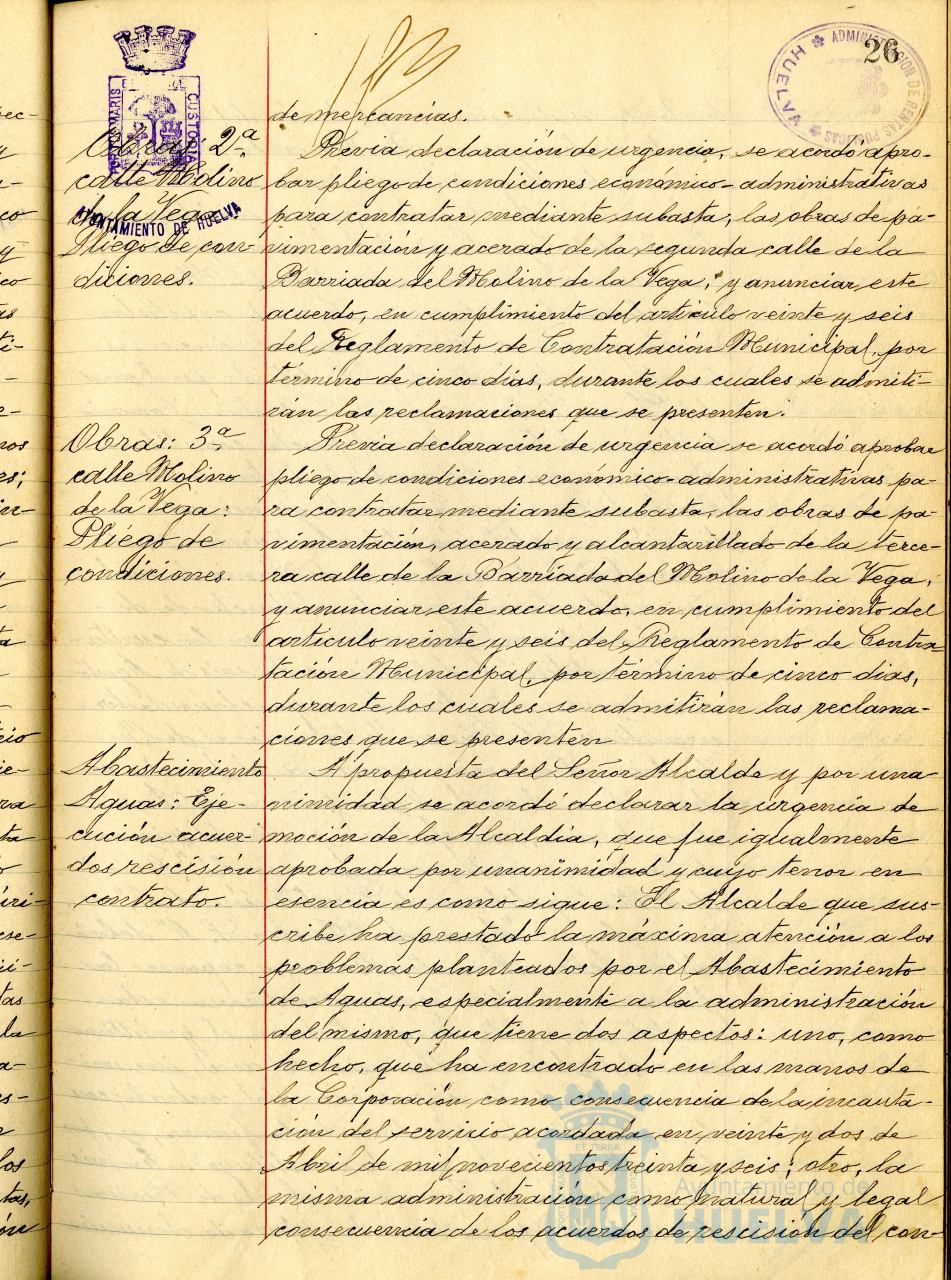 26
ADMINISTRACION DE RENTAS PUBLICAS
HUELVA
PORTUS MARIS
CUSTODIA
AYUNTAMIENTO DE HUELVA
de mercancías.
Obras: 2ª
calle Molino
de la Vega
Pliego de con-
diciones.
Previa declaración de urgencia, se acordó apro-
bar pliego de condiciones económico-administrativas
para contratar mediante subasta, las obras de pa-
vimentación y acerado de la segunda calle de la
Barriada del Molino de la Vega; y anunciar este
acuerdo, en cumplimiento del artículo veinte y seis
del Reglamento de Contratación Municipal, por
término de cinco días, durante los cuales se admiti-
rán las reclamaciones que se presenten.
Obras: 3ª
calle Molino
de la Vega:
Pliego de
condiciones.
Previa declaración de urgencia se acordó aprobar
pliego de condiciones económico-administrativas pa-
ra contratar mediante subasta, las obras de pa-
vimentación, acerado y alcantarillado de la terce-
ra calle de la Barriada del Molino de la Vega;
y anunciar este acuerdo, en cumplimiento del
artículo veinte y seis del Reglamento de Contra-
tación Municipal, por término de cinco días,
durante los cuales se admitirán las reclama-
ciones que se presenten
Abastecimiento
Aguas: Eje-
cución acuer-
dos rescisión
contrato.
A propuesta del Señor Alcalde y por una-
nimidad se acordó declarar la urgencia de
moción de la Alcaldía, que fue igualmente
aprobada por unanimidad y cuyo tenor en
esencia es como sigue: El Alcalde que sus-
cribe ha prestado la máxima atención a los
problemas planteados por el Abastecimiento
de Aguas, especialmente a la administración
del mismo, que tiene dos aspectos: uno, como
hecho, que ha encontrado en las manos de
la Corporación como consecuencia de la incauta-
ción del servicio acordada en veinte y dos de
Abril de mil novecientos treinta y seis; otro, la
misma administración como natural y legal
consecuencia de los acuerdos de rescisión del con-
Ayuntamiento de
HUELVA